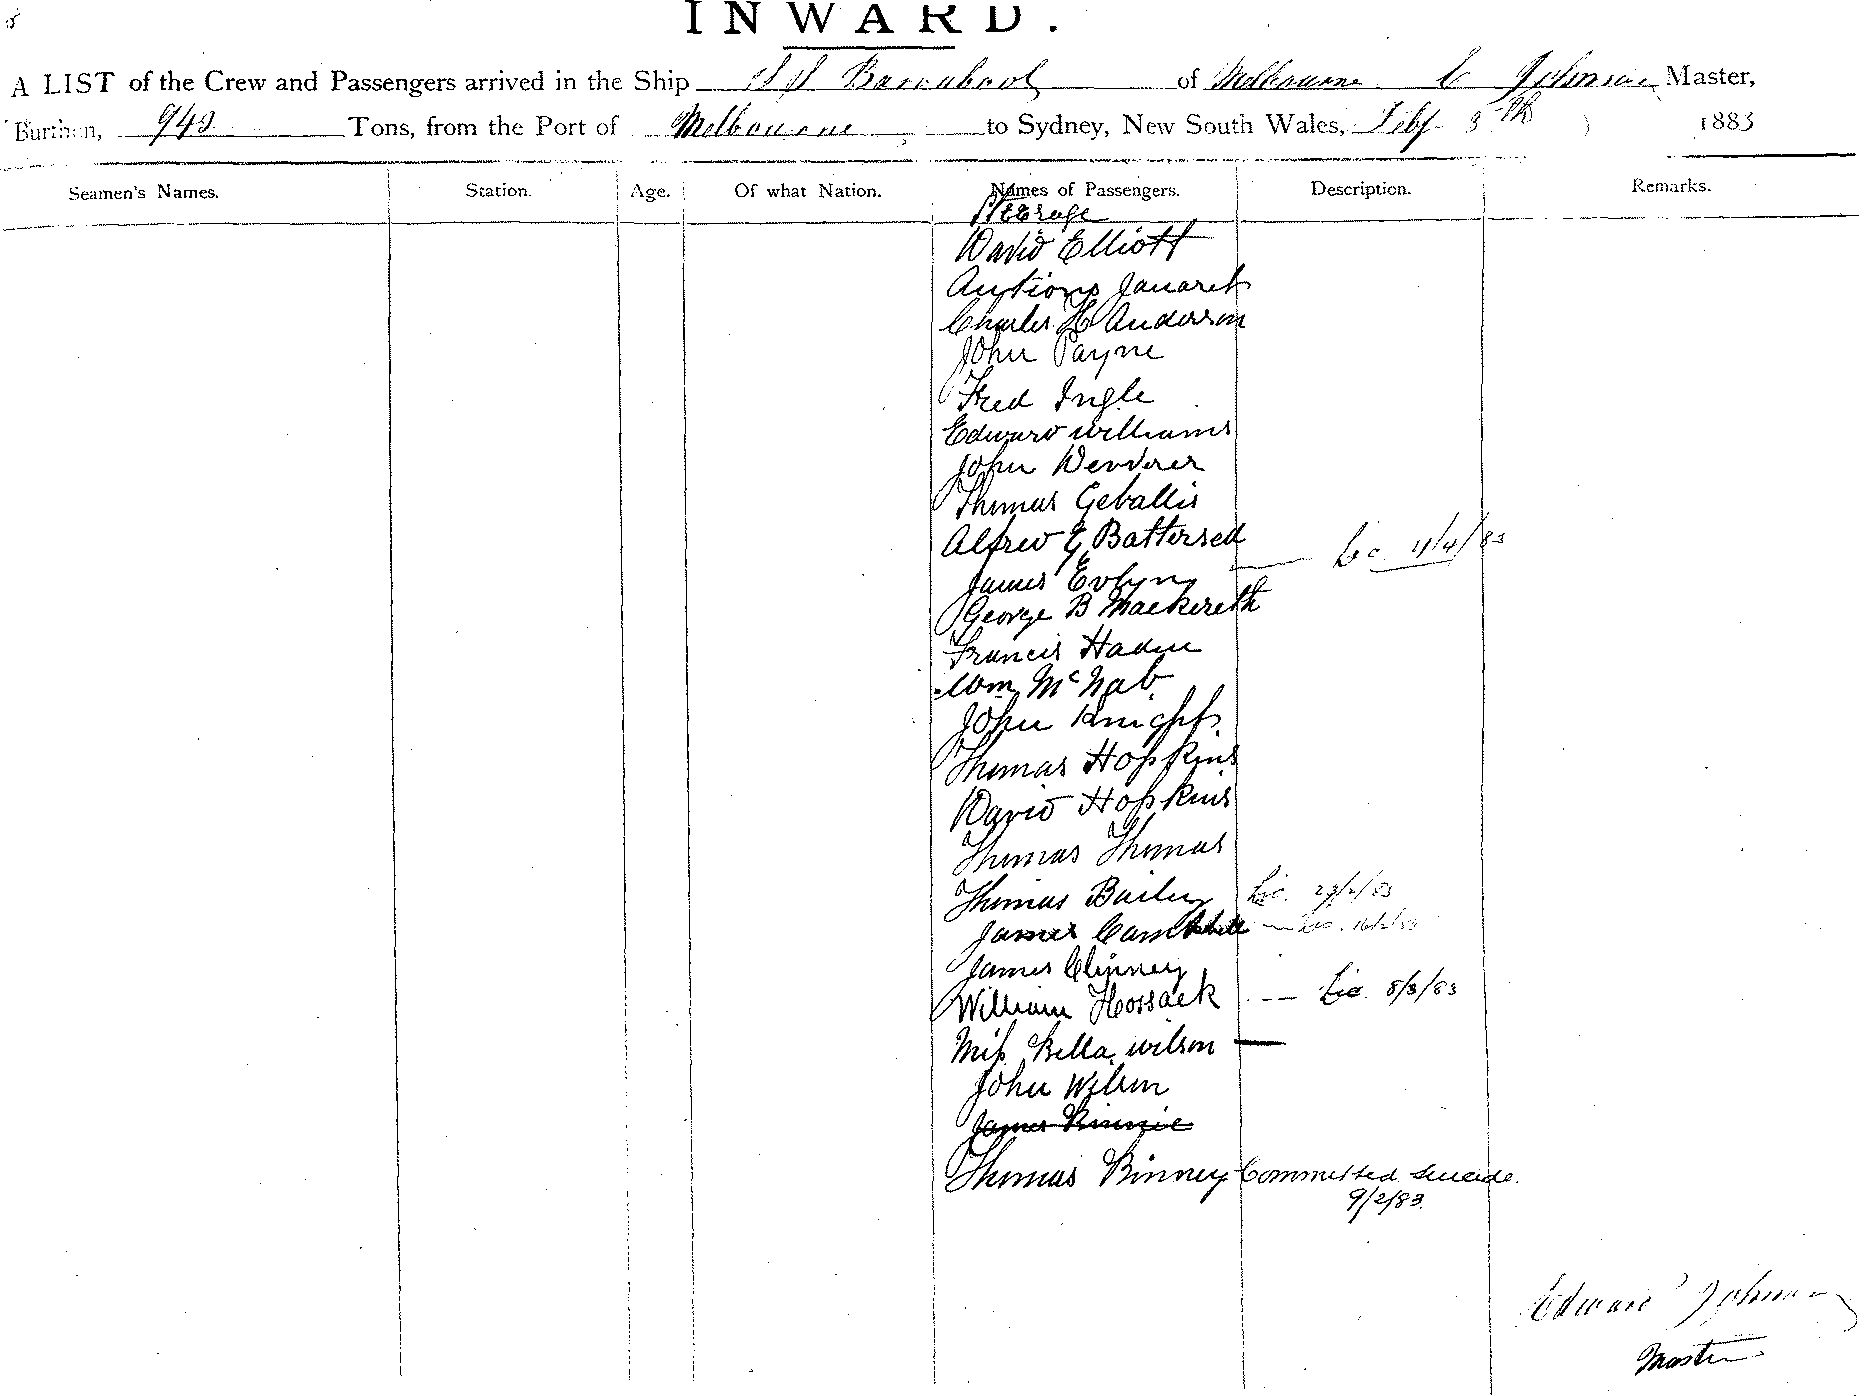 INWARD.
A LIST of the Crew and Passengers arrived in the Ship SS Barrabool of Melbourne E Johnson Master,
Burthen, 942 Tons, from the Port of Melbourne to Sydney, New South Wales, Feby 3th 1883
Seamen's Names. Station. Age. Of what Nation. Names of Passengers. Description. Remarks.
Steerage
David Elliott
Janaret
Charles H Anderson
John Payne
Fred Ingle
Edward Williams
John
Thomas Geballis
Alfred G Battersed
James Evlyn Lic 11/4/83
George B Mackereth
Francis Haden
Wm McNab
John Knight
Thomas Hopkins
David Hopkins
Thomas Thomas
Thomas Bailey Lic.
James Campbell
James Clinney
William Hossack Lic 8/3/83
Miss Bella Wilson
John Wilson
James Binnie
Thomas Binney Committed Suicide.
9/2/83.
Edward Johnson
Master